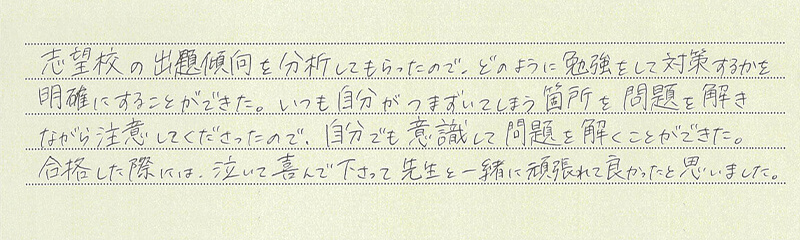 志望校の出題傾向を分析してもらったので、どのように勉強をして対策するかを
明確にすることができた。いつも自分がつまずいてしまう箇所を問題を解き
ながら注意してくださったので、自分でも意識して問題を解くことができた。
合格した際には、泣いて喜んで下さって先生と一緒に頑張れて良かったと思いました。